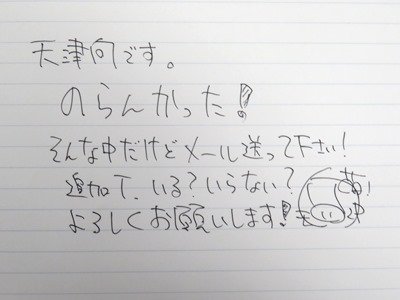 天津向です。
のらんかった!
そんな中だけどメール送って下さい!
追加T、いる?いらない?
よろしくお願いします!